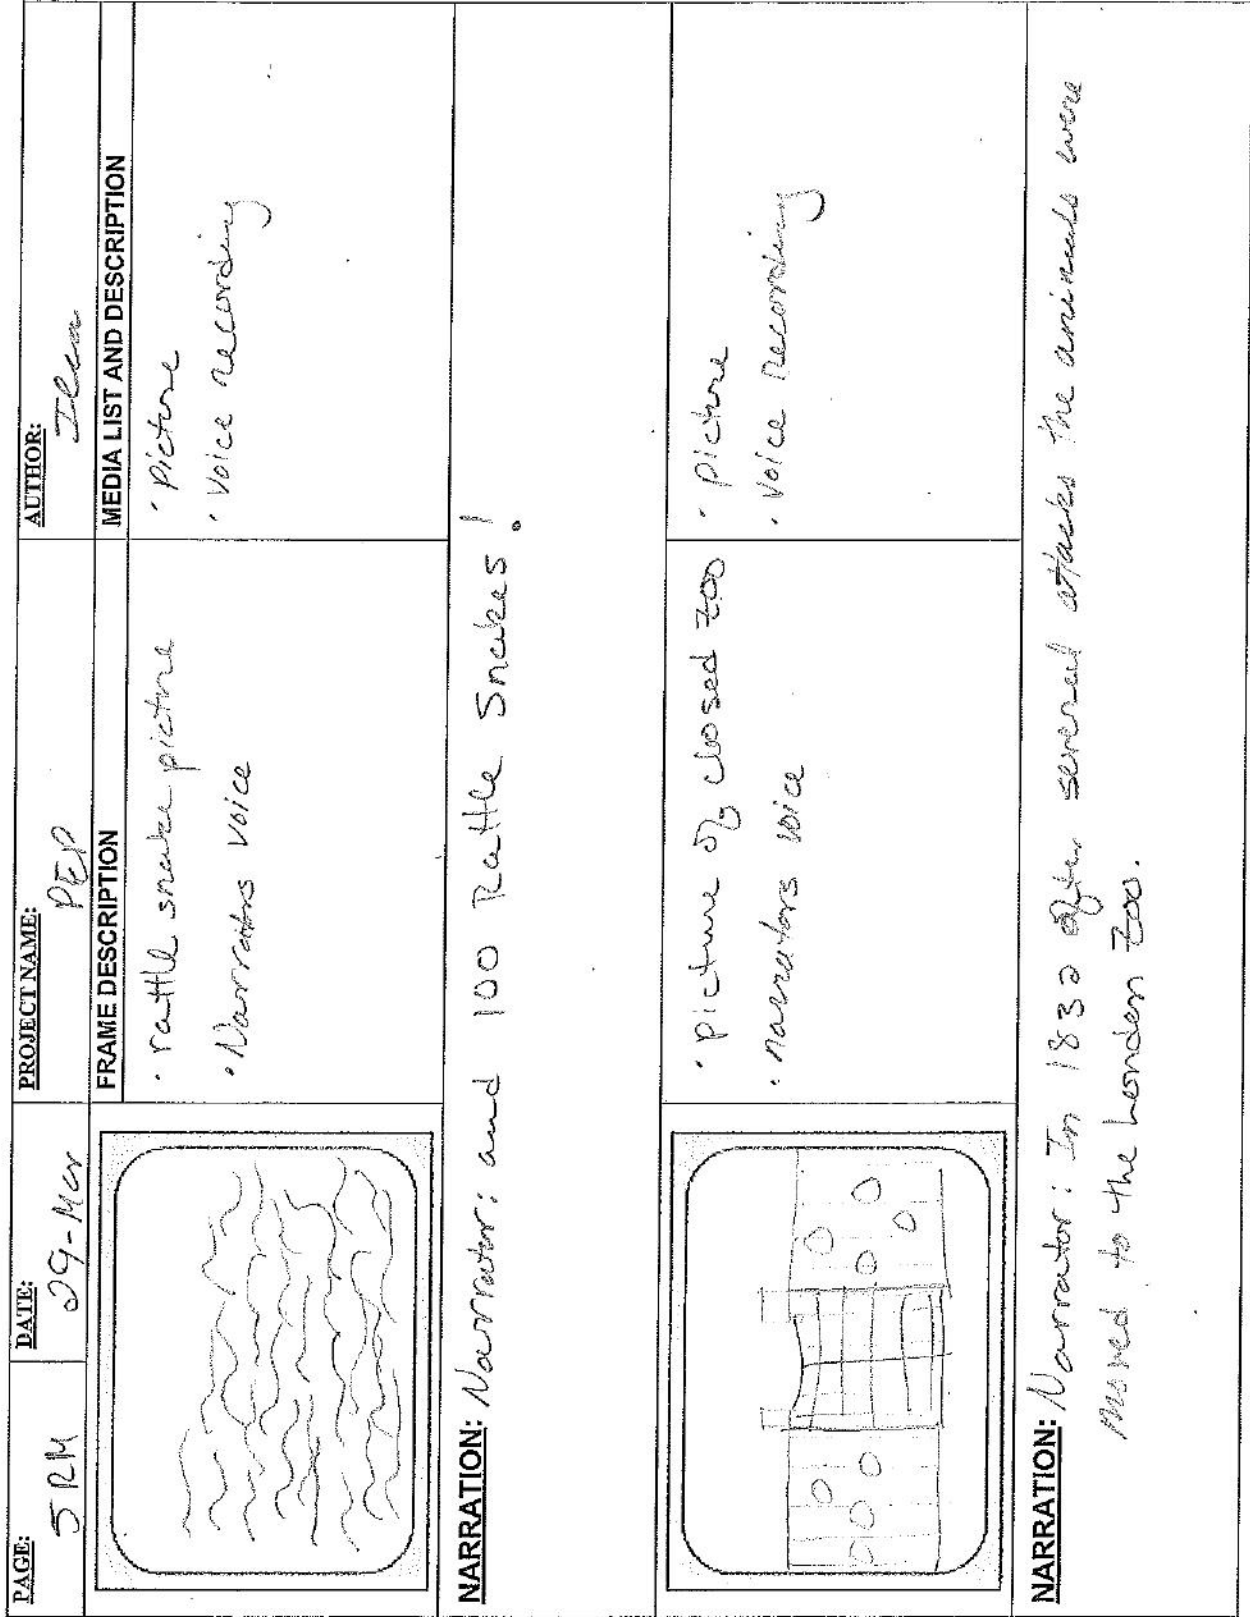 PAGE: 5RM
DATE: 29-Mar
PROJECT NAME: PEP
AUTHOR:
FRAME DESCRIPTION
MEDIA LIST AND DESCRIPTION
· rattle snake picture
· Narrators voice
· Picture
· Voice recording
NARRATION: Narrator: and 100 Rattle Snakes!
· picture of closed zoo
· narrators voice
· picture
· Voice Recording
NARRATION: Narrator: In 1832 after several attacks the animals were
moved to the London Zoo.